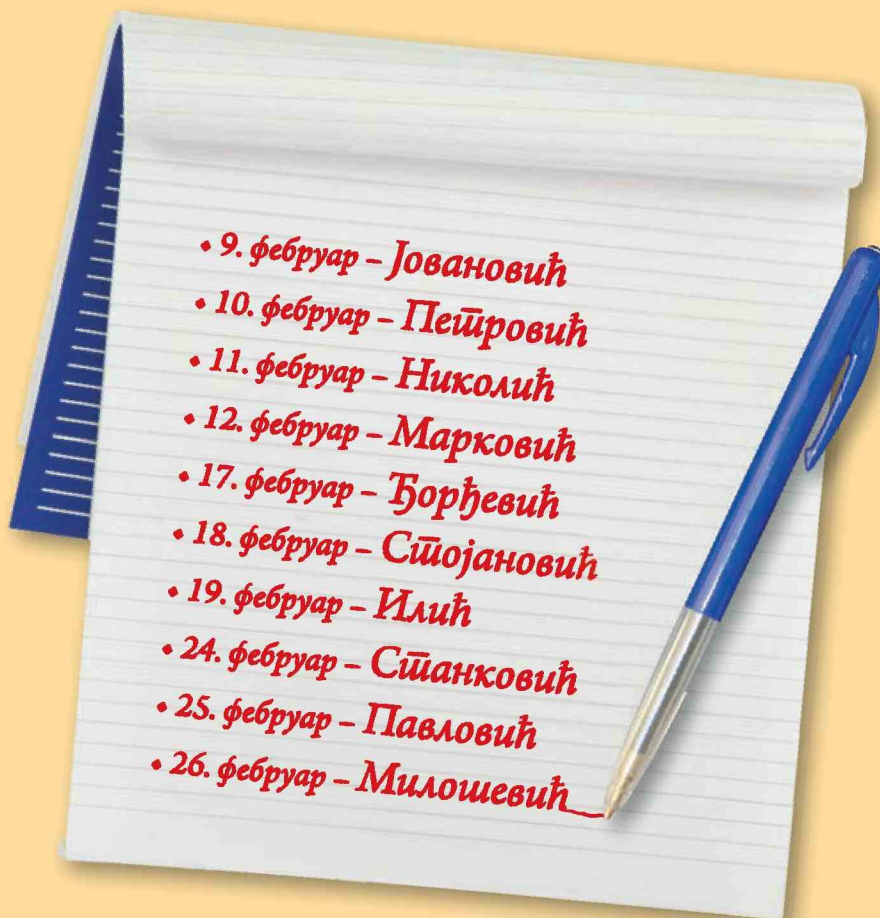 • 9. фебруар – Јовановић
• 10. фебруар – Петровић
• 11. фебруар – Николић
• 12. фебруар – Марковић
• 17. фебруар – Ђорђевић
• 18. фебруар – Стојановић
• 19. фебруар – Илић
• 24. фебруар – Станковић
• 25. фебруар – Павловић
• 26. фебруар – Милошевић